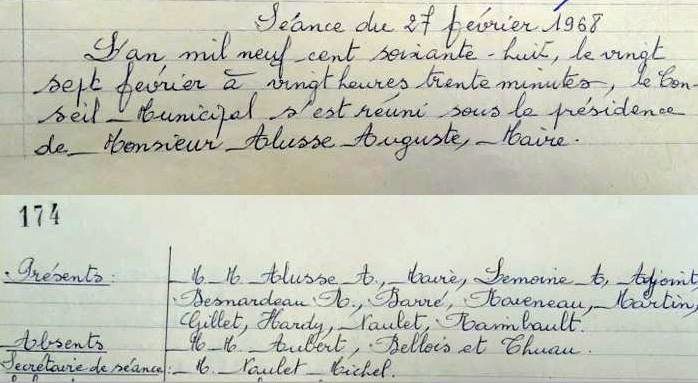 Séance du 27 février 1968
L'an mil neuf cent soixante-huit, le vingt
sept février à vingt heures trente minutes, le Con-
seil Municipal s'est réuni sous la présidence
de Monsieur Alusse Auguste, Maire.
174
Présents : M. M. Alusse A., Maire, Lemoine A, Adjoint,
Besnardeau R., Barré, Raveneau, Martin,
Gillet, Hardy, Naulet, Raimbault.
Absents M. M. Aubert, Bellois et Thuau.
Secrétaire de séance : M. Naulet Michel.